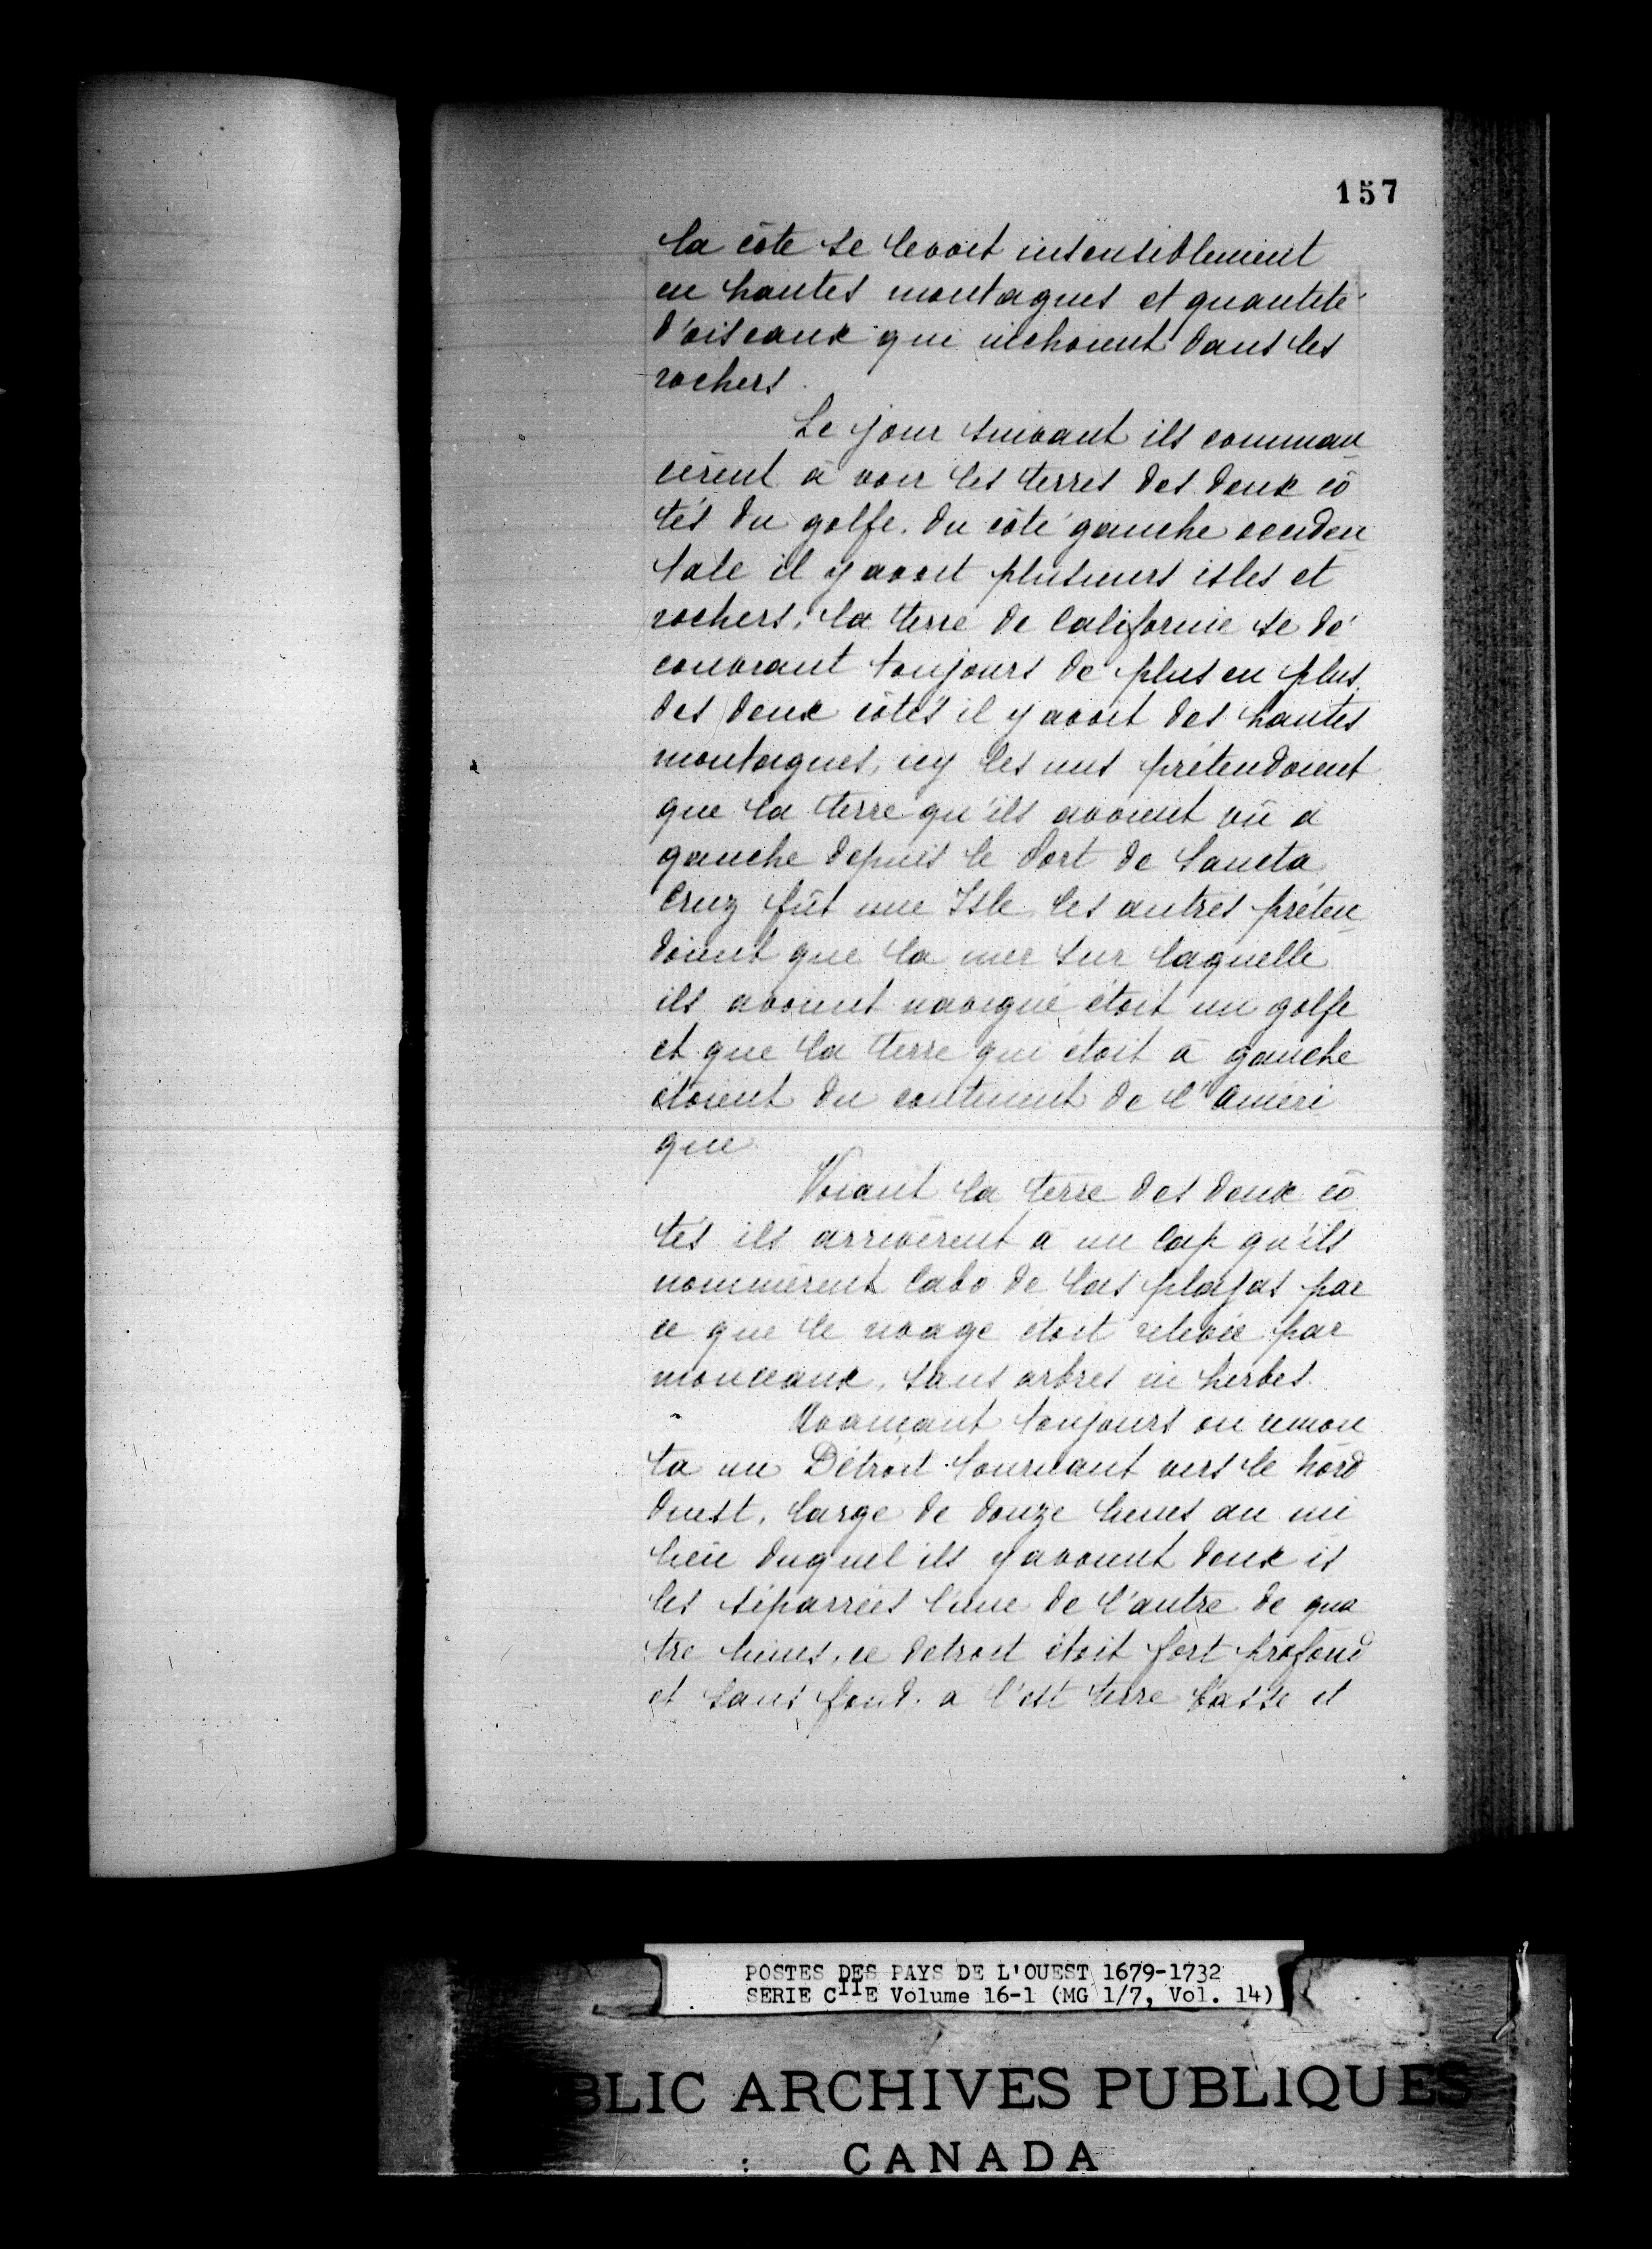 157
la côte se levoit insensiblement
en hautes montagnes et quantité
d'oiseaux qui nichoient dans les
rochers.
Le jour suivant ils comman
cèrent à voir les terres des deux cô
tés du golfe. du côté gauche occiden
tale il y avoit plusieurs isles et
rochers, la terre de Californie se dé
couvrant toujours de plus en plus.
des deux côtés il y avoit des hautes
montagnes, icy les uns prétendoient
que la terre qu'ils avoient vû à
gauche depuis le Port de Sancta
Cruz fût une Isle, les autres préten
doient que la mer sur laquelle
ils avoient navigué étoit un golfe
et que la terre qui étoit à gauche
étoient du continent de l'Améri
que.
Voiant la terre des deux cô
tés ils arrivèrent à un Cap qu'ils
nommèrent Cabo de las plajas par
ce que le rivage étoit relevée par
monceaux, sans arbres ni herbes.
Avançant toujours on remon
ta un Détroit tournant vers le nord
ouest, large de douze lieues au mi
lieu duquel ils y avoient deux is
les séparrées l'une de l'autre de qua
tre lieues, ce detroit étoit fort profond
et sans fond. a l'est terre basse et
POSTES DES PAYS DE L'OUEST 1679-1732
SERIE C11E Volume 16-1 (MG 1/7, Vol. 14)
BLIC ARCHIVES PUBLIQUES
CANADA